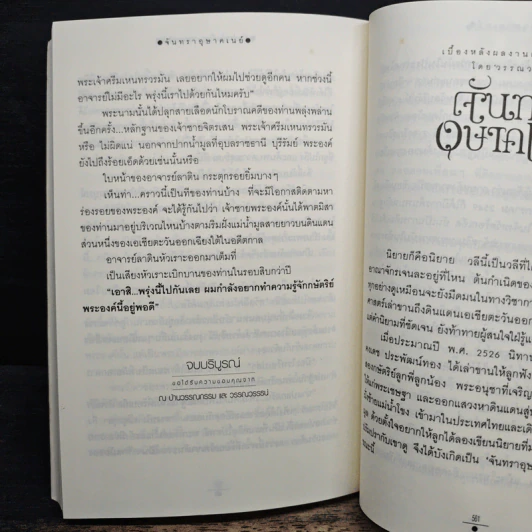 จันทราอุษาคเนย์
พระเจ้าศรีมเหนทรวรมัน เลยอยากให้ผมไปช่วยดูอีกคน หากช่วงนี้
อาจารย์ไม่มีอะไร พรุ่งนี้เราไปด้วยกันไหมครับ"
พระนามนั้นได้ปลุกสายเลือดนักโบราณคดีของท่านพลุ่งพล่าน
ขึ้นอีกครั้ง...หลักฐานของเจ้าชายจิตรเสน พระเจ้าศรีมเหนทรวรมัน
หรือ ไม่ผิดแน่ นอกจากปากน้ำมูลที่อุบลราชธานี บุรีรัมย์ พระองค์
ยังไปถึงร้อยเอ็ดด้วยเช่นนั้นหรือ
ใบหน้าของอาจารย์ลาติน กระตุกรอยยิ้มบางๆ
เห็นท่า...คราวนี้เป็นทีของท่านบ้าง ที่จะมีโอกาสติดตามหา
ร่องรอยของพระองค์ จะได้รู้กันไปว่า เจ้าชายพระองค์นั้นได้พาดมิสา
ของท่านมาอยู่บริเวณไหนบ้างตามริมฝั่งแม่น้ำมูลสายยาวบนดินแดน
ส่วนหนึ่งของเอเชียตะวันออกเฉียงใต้ในอดีตกาล
อาจารย์ลาตินหัวเราะออกมาเต็มที่
เป็นเสียงหัวเราะเบิกบานของท่านในรอบสิบกว่าปี
"เอาสิ...พรุ่งนี้ไปกันเลย ผมกำลังอยากทำความรู้จักกษัตริย์
พระองค์นี้อยู่พอดี"
จบบริบูรณ์
ขอได้รับความขอบคุณจาก
ณ บ้านวรรณกรรม และ วรรณวรรธน์
เบื้องหลังผลงาน
โดย วรรณว
จันท
อุษาค
นิยายก็คือนิยาย วลีนี้เป็นวลีที่
อาณาจักรเจนละอยู่ที่ไหน ต้นกำเนิดของ
ทุกอย่างดูเหมือนจะยังมืดมนในทางวิชากา
ศาสตร์เล่าขานถึงดินแดนเอเชียตะวันออก
แต่คำนิยามที่ชัดเจน ยังท้าทายผู้สนใจใฝ่รู้
เมื่อประมาณปี พ.ศ. 2526 นิทาน
ประพัฒน์ทอง ได้เล่าขานให้ลูกฟัง
กษัตริย์ลูกพี่ลูกน้อง พระอนุชาที่เจริญ
พระเชษฐา และออกแสวงหาดินแดน
เข้ามาในประเทศไทย
ด้วยตั้งใจอยากให้ลูกได้ลองเขียนนิยาย
จึงได้บังเกิดเป็น 'จันทราอุษ
581